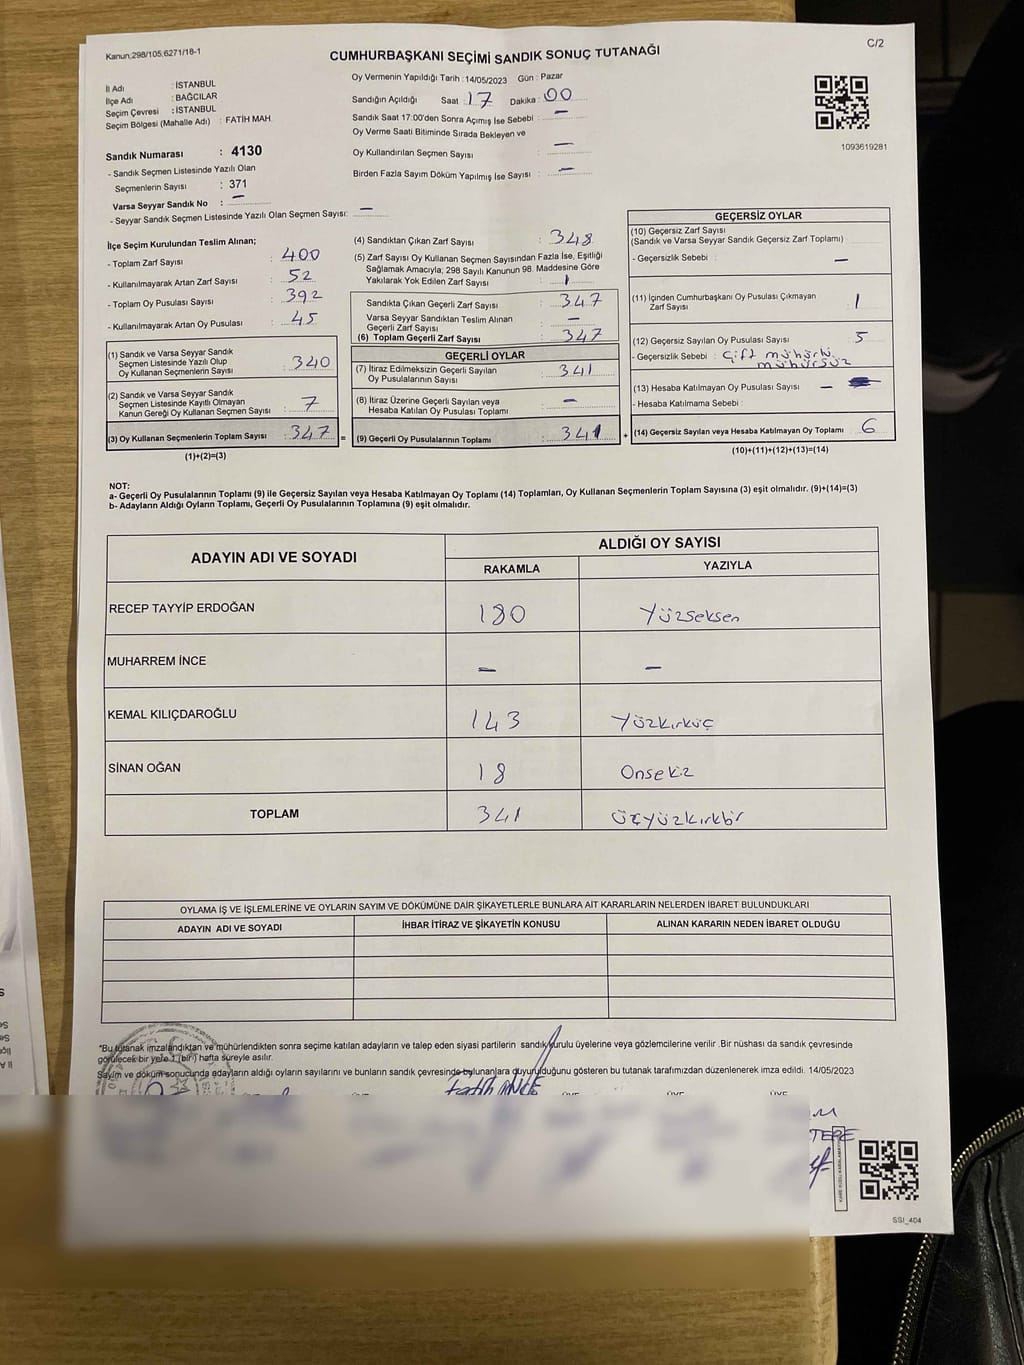 Kanun;298/105;6271/18-1
C/2
CUMHURBAŞKANI SEÇİMİ SANDIK SONUÇ TUTANAĞI
İl Adı : İSTANBUL
İlçe Adı : BAĞCILAR
Seçim Çevresi : İSTANBUL
Seçim Bölgesi (Mahalle Adı) : FATİH MAH.
Sandık Numarası : 4130
- Sandık Seçmen Listesinde Yazılı Olan
Seçmenlerin Sayısı : 371
Varsa Seyyar Sandık No : –
- Seyyar Sandık Seçmen Listesinde Yazılı Olan Seçmen Sayısı: –
Oy Vermenin Yapıldığı Tarih : 14/05/2023 Gün : Pazar
Sandığın Açıldığı Saat : 17 Dakika : 00
Sandık Saat 17:00'den Sonra Açımış İse Sebebi : –
Oy Verme Saati Bitiminde Sırada Bekleyen ve
Oy Kullandırılan Seçmen Sayısı : –
Birden Fazla Sayım Döküm Yapılmış İse Sayısı : –
1093619281
İlçe Seçim Kurulundan Teslim Alınan;
- Toplam Zarf Sayısı : 400
- Kullanılmayarak Artan Zarf Sayısı : 52
- Toplam Oy Pusulası Sayısı : 392
- Kullanılmayarak Artan Oy Pusulası : 45
(1) Sandık ve Varsa Seyyar Sandık
Seçmen Listesinde Yazılı Olup
Oy Kullanan Seçmenlerin Sayısı : 340
(2) Sandık ve Varsa Seyyar Sandık
Seçmen Listesinde Kayıtlı Olmayan
Kanun Gereği Oy Kullanan Seçmen Sayısı : 7
(3) Oy Kullanan Seçmenlerin Toplam Sayısı : 347 =
(1)+(2)=(3)
(4) Sandıktan Çıkan Zarf Sayısı : 348
(5) Zarf Sayısı Oy Kullanan Seçmen Sayısından Fazla İse, Eşitliği
Sağlamak Amacıyla; 298 Sayılı Kanunun 98. Maddesine Göre
Yakılarak Yok Edilen Zarf Sayısı : 1
Sandıkta Çıkan Geçerli Zarf Sayısı : 347
Varsa Seyyar Sandıktan Teslim Alınan
Geçerli Zarf Sayısı : –
(6) Toplam Geçerli Zarf Sayısı : 347
GEÇERLİ OYLAR
(7) İtiraz Edilmeksizin Geçerli Sayılan
Oy Pusulalarının Sayısı : 341
(8) İtiraz Üzerine Geçerli Sayılan veya
Hesaba Katılan Oy Pusulası Toplamı : –
(9) Geçerli Oy Pusulalarının Toplamı : 341 +
GEÇERSİZ OYLAR
(10) Geçersiz Zarf Sayısı
(Sandık ve Varsa Seyyar Sandık Geçersiz Zarf Toplamı)
- Geçersizlik Sebebi : –
(11) İçinden Cumhurbaşkanı Oy Pusulası Çıkmayan
Zarf Sayısı : 1
(12) Geçersiz Sayılan Oy Pusulası Sayısı : 5
- Geçersizlik Sebebi : Çift mühürlü
mühürsüz
(13) Hesaba Katılmayan Oy Pusulası Sayısı : –
- Hesaba Katılmama Sebebi :
(14) Geçersiz Sayılan veya Hesaba Katılmayan Oy Toplamı : 6
(10)+(11)+(12)+(13)=(14)
NOT:
a- Geçerli Oy Pusulalarının Toplamı (9) ile Geçersiz Sayılan veya Hesaba Katılmayan Oy Toplamı (14) Toplamları, Oy Kullanan Seçmenlerin Toplam Sayısına (3) eşit olmalıdır. (9)+(14)=(3)
b- Adayların Aldığı Oyların Toplamı, Geçerli Oy Pusulalarının Toplamına (9) eşit olmalıdır.
ADAYIN ADI VE SOYADI
ALDIĞI OY SAYISI
RAKAMLA YAZIYLA
RECEP TAYYİP ERDOĞAN 180 Yüzseksen
MUHARREM İNCE – –
KEMAL KILIÇDAROĞLU 143 Yüzkırküç
SİNAN OĞAN 18 Onsekiz
TOPLAM 341 Üçyüzkırkbir
OYLAMA İŞ VE İŞLEMLERİNE VE OYLARIN SAYIM VE DÖKÜMÜNE DAİR ŞİKAYETLERLE BUNLARA AİT KARARLARIN NELERDEN İBARET BULUNDUKLARI
ADAYIN ADI VE SOYADI İHBAR İTİRAZ VE ŞİKAYETİN KONUSU ALINAN KARARIN NEDEN İBARET OLDUĞU
*Bu tutanak imzalandıktan ve mühürlendikten sonra seçime katılan adayların ve talep eden siyasi partilerin sandık kurulu üyelerine veya gözlemcilerine verilir .Bir nüshası da sandık çevresinde
görülecek bir yere 1 (bir) hafta süreyle asılır.
Sayım ve döküm sonucunda adayların aldığı oyların sayılarını ve bunların sandık çevresinde bulunanlara duyurulduğunu gösteren bu tutanak tarafımızdan düzenlenerek imza edildi. 14/05/2023
Fatih İNCE
TEPE
SSI_404